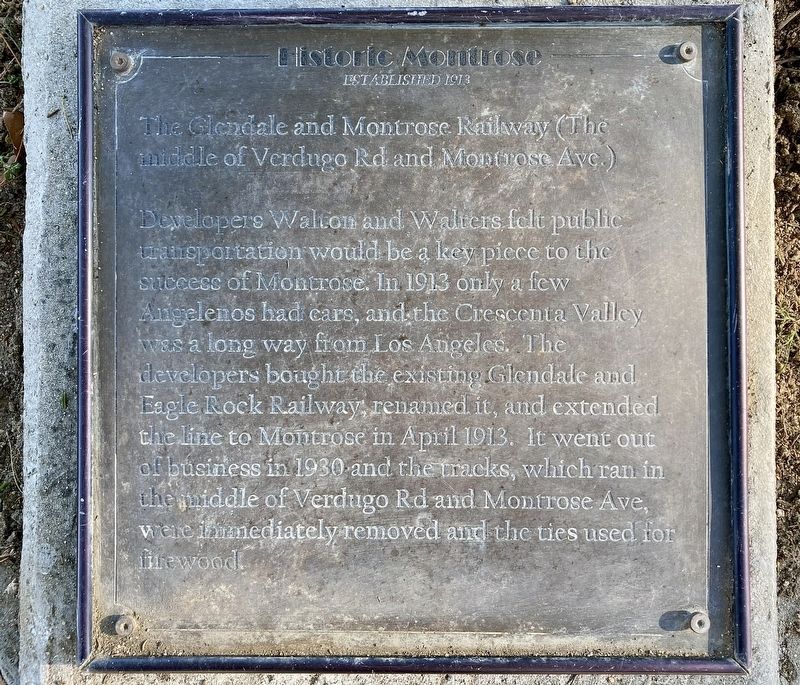 Historic Montrose
ESTABLISHED 1913
The Glendale and Montrose Railway (The
middle of Verdugo Rd and Montrose Ave.)
Developers Walton and Walters felt public
transportation would be a key piece to the
success of Montrose. In 1913 only a few
Angelenos had cars, and the Crescenta Valley
was a long way from Los Angeles. The
developers bought the existing Glendale and
Eagle Rock Railway, renamed it, and extended
the line to Montrose in April 1913. It went out
of business in 1930 and the tracks, which ran in
the middle of Verdugo Rd and Montrose Ave,
were immediately removed and the ties used for
firewood.